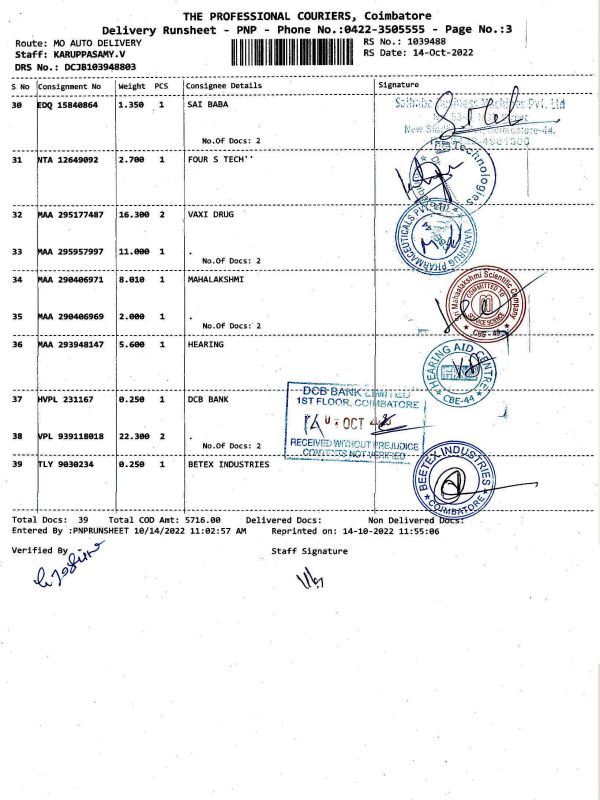 THE PROFESSIONAL COURIERS, Coimbatore
Delivery Runsheet - PNP - Phone No.:0422-3505555 - Page No.:3
Route: MO AUTO DELIVERY RS No.: 1039488
Staff: KARUPPASAMY.V RS Date: 14-Oct-2022
DRS No.: DCJB103948803
S No Consignment No Weight PCS Consignee Details Signature
30 EDQ 15840864 1.350 1 SAI BABA
No.Of Docs: 2
31 NTA 12649092 2.700 1 FOUR S TECH''
Technologies
32 MAA 295177487 16.300 2 VAXI DRUG
33 MAA 295957997 11.000 1 .
No.Of Docs: 2
VAXIDRUG PHARMACEUTICALS PVT. LTD
34 MAA 290406971 8.010 1 MAHALAKSHMI
35 MAA 290406969 2.000 1 .
No.Of Docs: 2
Sri Mahaalakshmi Scientific Company
COMMITTED TO
SERVICE SCIENCE
CBE-44
36 MAA 293948147 5.600 1 HEARING
HEARING AID CENTRE
CBE-44
37 HVPL 231167 0.250 1 DCB BANK
38 VPL 939118018 22.300 2 .
No.Of Docs: 2
DCB BANK LIMITED
1ST FLOOR, COIMBATORE
OCT
RECEIVED WITHOUT PREJUDICE
CONTENTS NOT VERIFIED
39 TLY 9030234 0.250 1 BETEX INDUSTRIES
BEETEX INDUSTRIES
COIMBATORE
Total Docs: 39 Total COD Amt: 5716.00 Delivered Docs: Non Delivered Docs:
Entered By :PNPRUNSHEET 10/14/2022 11:02:57 AM Reprinted on: 14-10-2022 11:55:06
Verified By Staff Signature